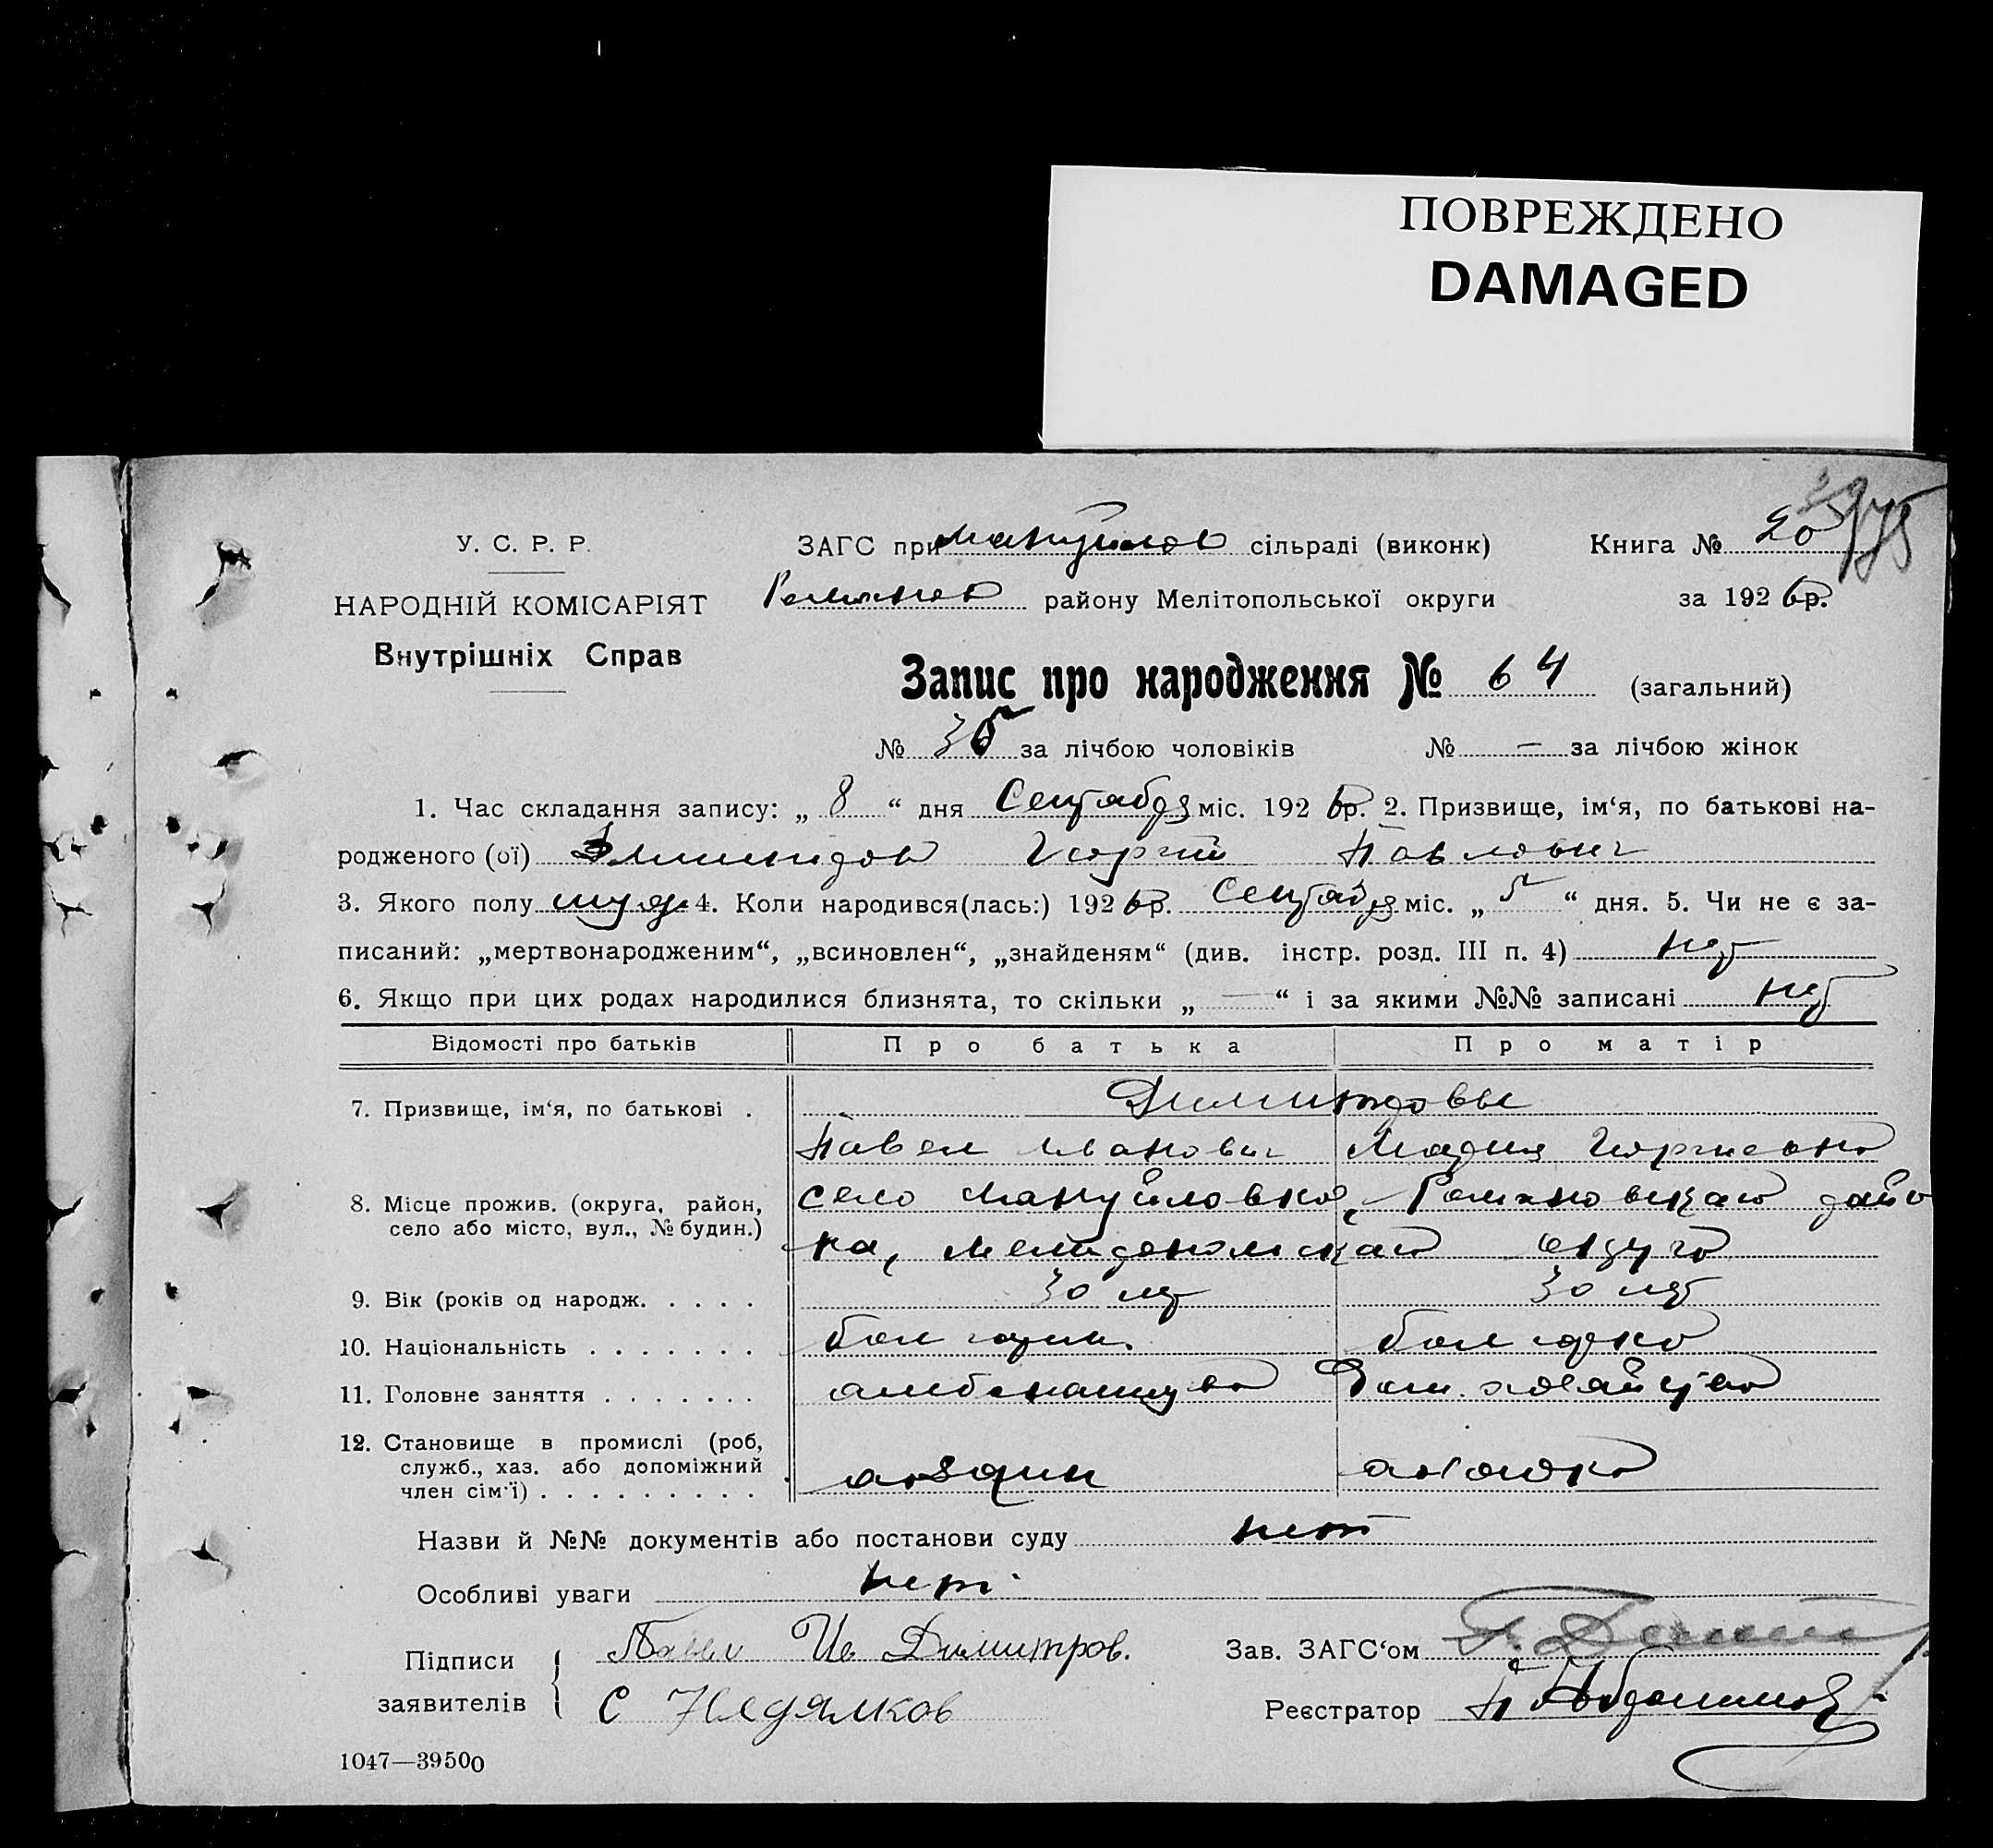 ПОВРЕЖДЕНО
DAMAGED
У. С. Р. Р.
НАРОДНІЙ КОМІСАРІЯТ
Внутрішніх Справ
ЗАГС при Мануйлов сільраді (виконк)
Книга № 20
районy Мелітопольської округи
за 1926 р.
Запис про народження № 64 (загальний)
№ 35 за лічбою чоловіків № — за лічбою жінок
1. Час складання запису: „ 8 “ дня Сентября міс. 1926 р. 2. Призвище, ім‘я, по батькові на-
родженого (ої) Георгий Павлович
3. Якого полу муж. 4. Коли народився(лась:) 1926 р. Сентября міс. „ 5 “ дня. 5. Чи не є за-
писаний: „мертвонародженим“, „всиновлен“, „знайденям“ (див. інстр. розд. III п. 4) нет
6. Якщо при цих родах народилися близнята, то скільки „ — “ і за якими №№ записані нет
Відомості про батьків Про батька Про матір
7. Призвище, ім‘я, по батькові . Димитровы
Павел Иванович Мария Георгиевна
8. Місце прожив. (округа, район,
село або місто, вул., № будин.)
село Мануйловка, Романовскаго райо
на, Мелитопольскаго округа
9. Вік (років од народж. . . . . 30 лет 30 лет
10. Національність . . . . . . . болгарин. болгарка
11. Головне заняття . . . . . . . Дом. хозяйство
12. Становище в промислі (роб,
служб., хаз. або допоміжний
член сім‘ї) . . . . . . . . .
Назви й №№ документів або постанови суду нет
Особливі уваги нет
Підписи
заявителів
Павел Ив Димитров.
С Недялков
Зав. ЗАГС‘ом
Реєстратор
1047—39500